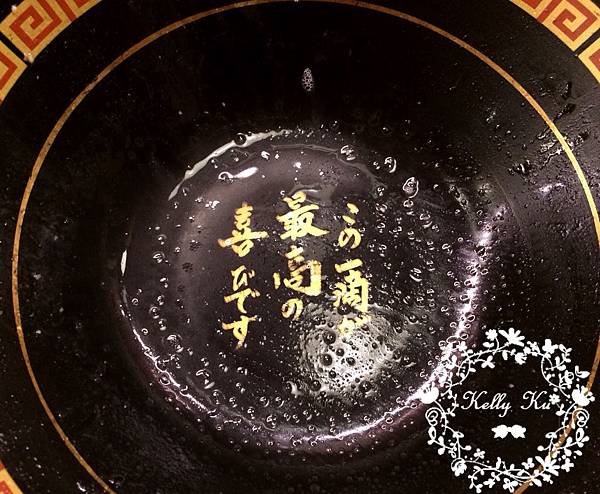 この一滴が
最高の
喜びです
Kelly Ku